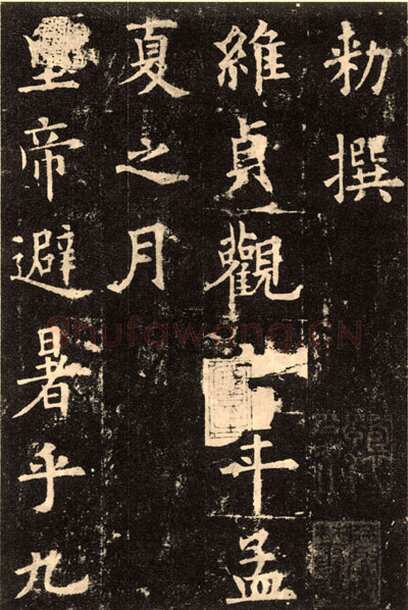 勅撰
維貞觀年孟
夏之月
皇帝避暑乎九
Shufawang.CN